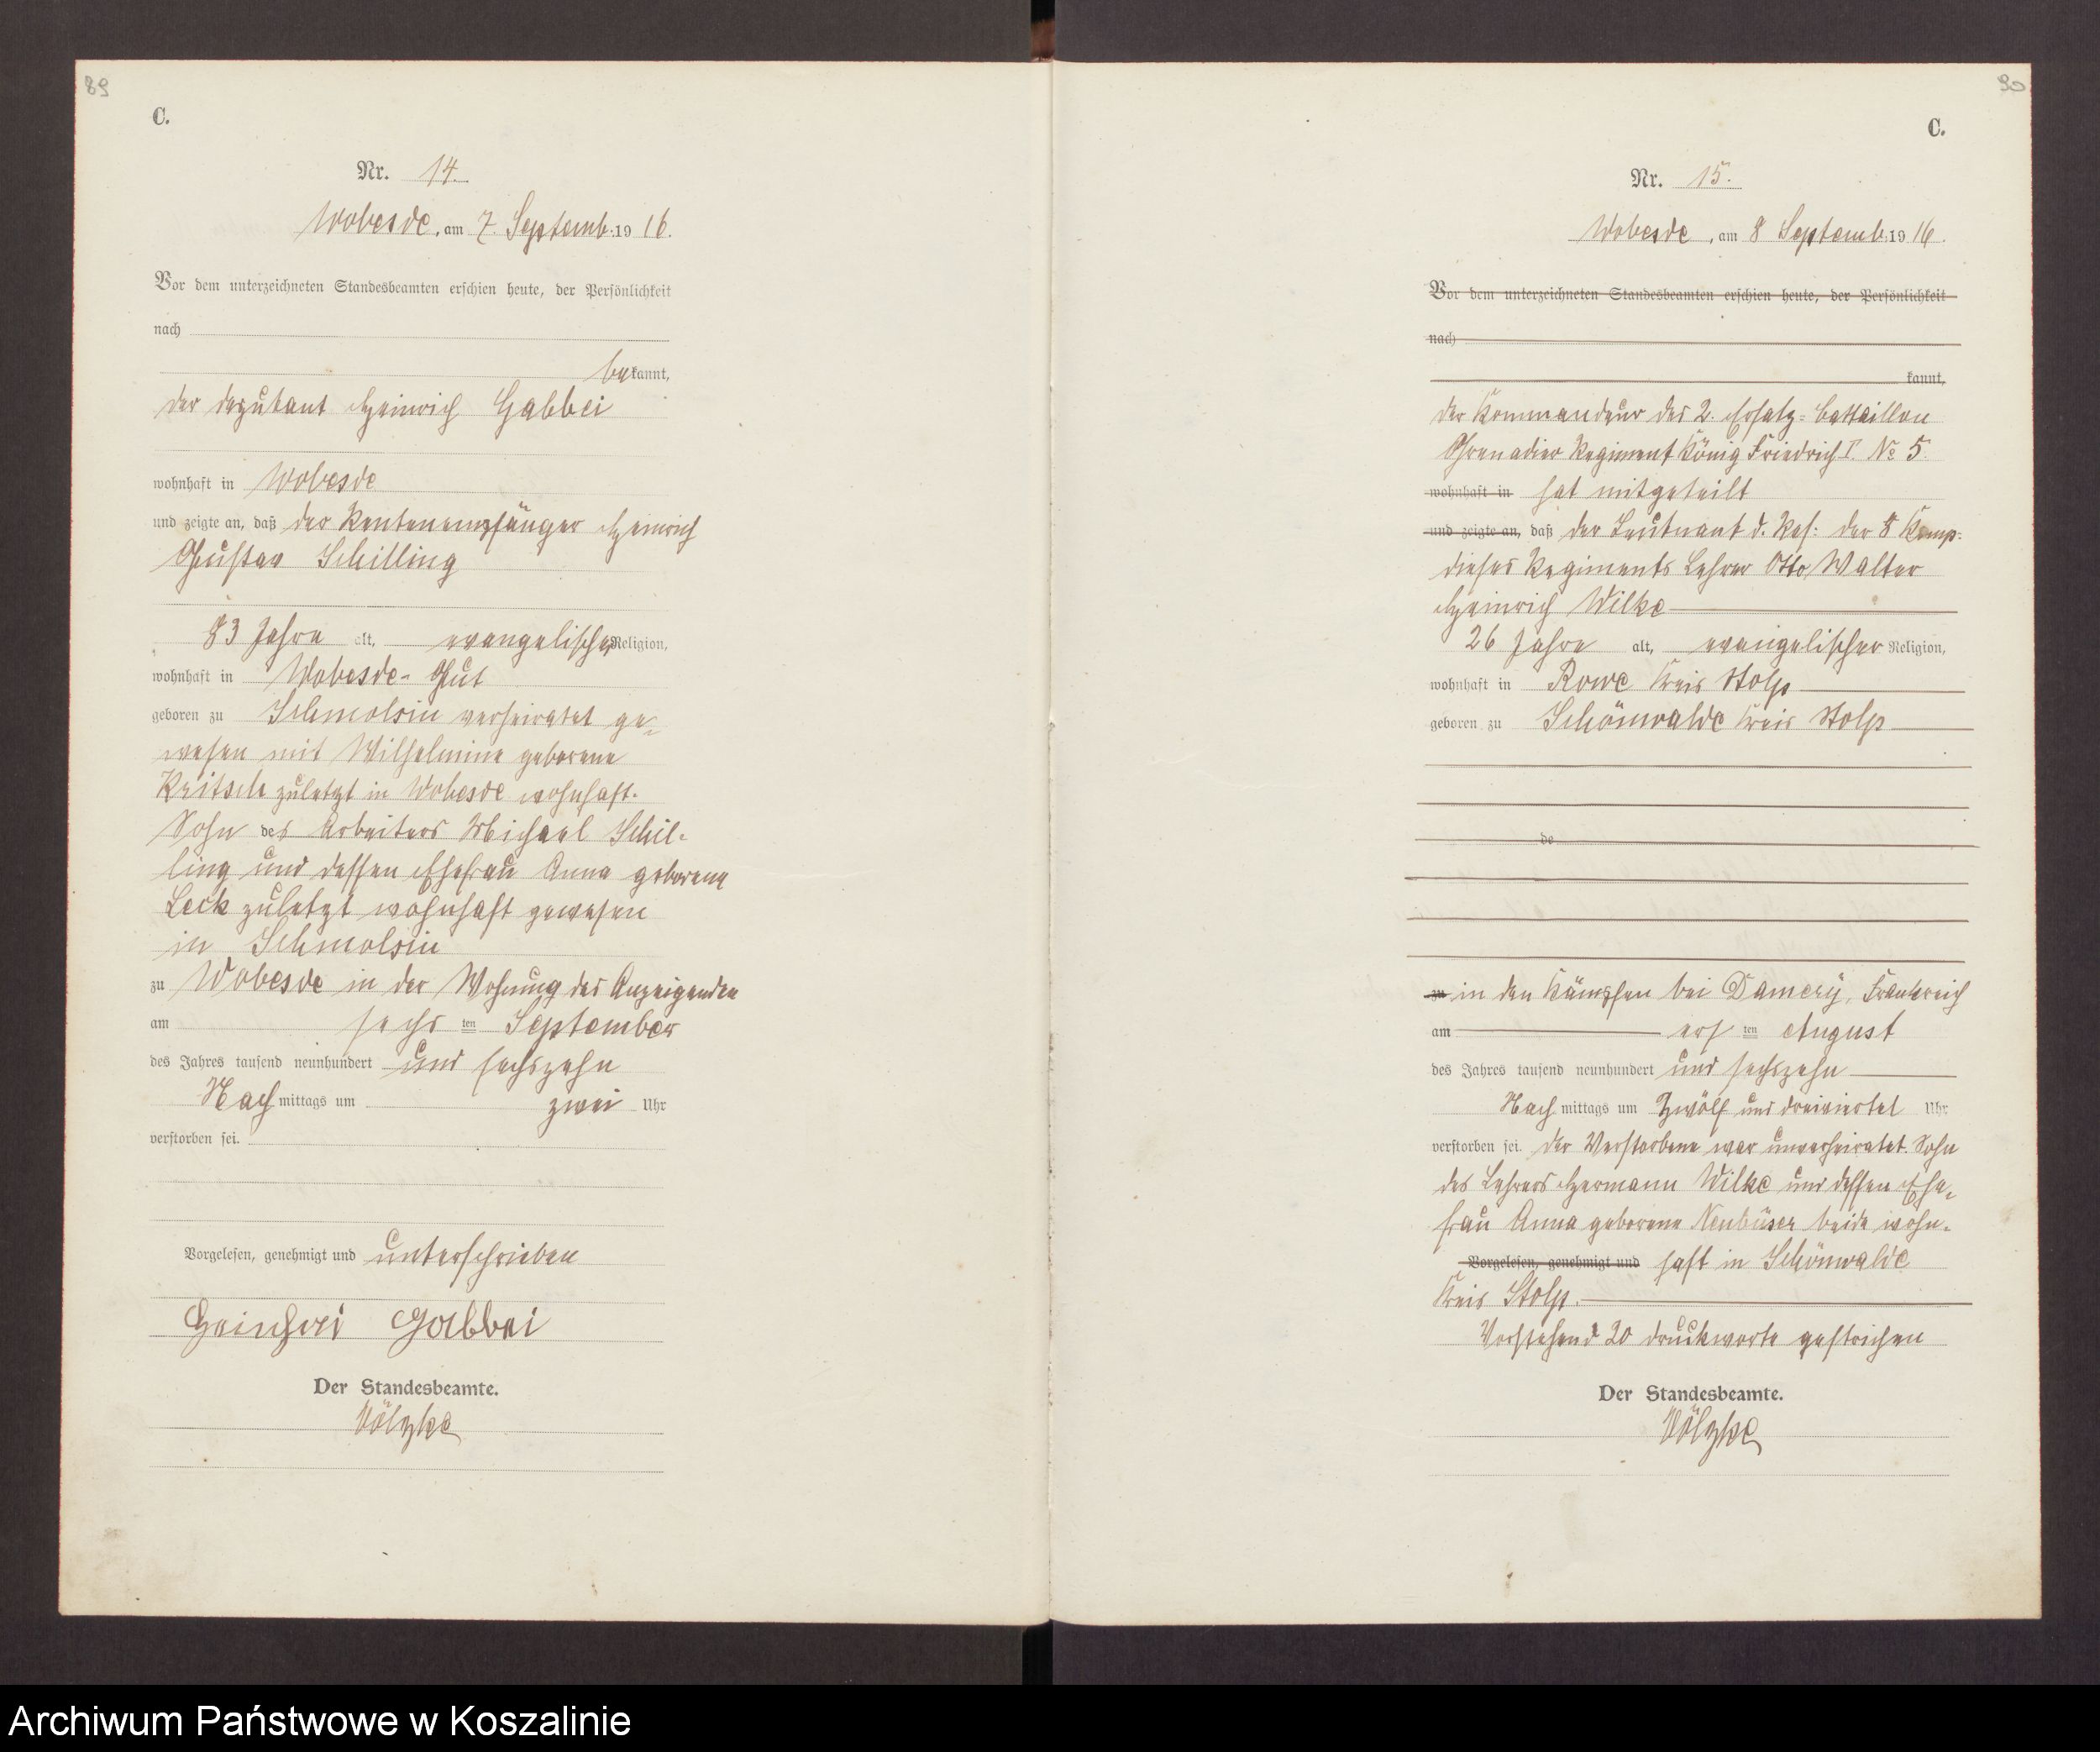 89
C.
Nr. 14.
Wobesde, am 7. Septemb. 1916.
Vor dem unterzeichneten Standesbeamten erschien heute, der Persönlichkeit
nach
bekannt,
der Deputant Heinrich Gabbei
wohnhaft in Wobesde
und zeigte an, daß der Rentenempfänger Heinrich
Gustav Schilling
83 Jahre alt, evangelischer Religion,
wohnhaft in Wobesde-Gut
geboren zu Schmolsin verheiratet ge-
wesen mit Wilhelmine geborene
zuletzt in Wobesde wohnhaft.
Sohn des Arbeiters Michael Schil-
ling und dessen Ehefrau Anna geborene
Leck zuletzt wohnhaft gewesen
in Schmolsin
zu Wobesde in der Wohnung des Anzeigenden
am sechsten September
des Jahres tausend neunhundert und sechszehn
Nachmittags um zwei Uhr
verstorben sei.
Vorgelesen, genehmigt und unterschrieben
Gabbei
Der Standesbeamte.
Völzke
90
C.
Nr. 15.
Wobesde, am 8 Septemb. 1916.
Vor dem unterzeichneten Standesbeamten erschien heute, der Persönlichkeit
nach
kannt,
der Kommandeur des 2. Ersatz-Battaillon
Grenadier Regiment König Friedrich I. No 5.
wohnhaft in hat mitgeteilt
und zeigte an, daß der Leutnant d. Res: der 8 Komp:
dieses Regiments Lehrer Otto Walter
Heinrich Wilke
26 Jahre alt, evangelischer Religion,
wohnhaft in Rowe Kreis Stolp
geboren zu Schönwalde Kreis Stolp
de
zu in den Kämpfen bei Damery, Frankreich
am ersten August
des Jahres tausend neunhundert und sechszehn
Nachmittags um Zwölf und dreiviertel Uhr
verstorben sei. Der Verstorbene war unverheiratet. Sohn
des Lehrers Hermann Wilke und dessen Ehe-
frau Anna geborene Neubüser beide wohn-
Vorgelesen, genehmigt und haft in Schönwalde
Kreis Stolp.
Vorstehend 20 Druckworte gestrichen
Der Standesbeamte.
Völzke
Archiwum Państwowe w Koszalinie